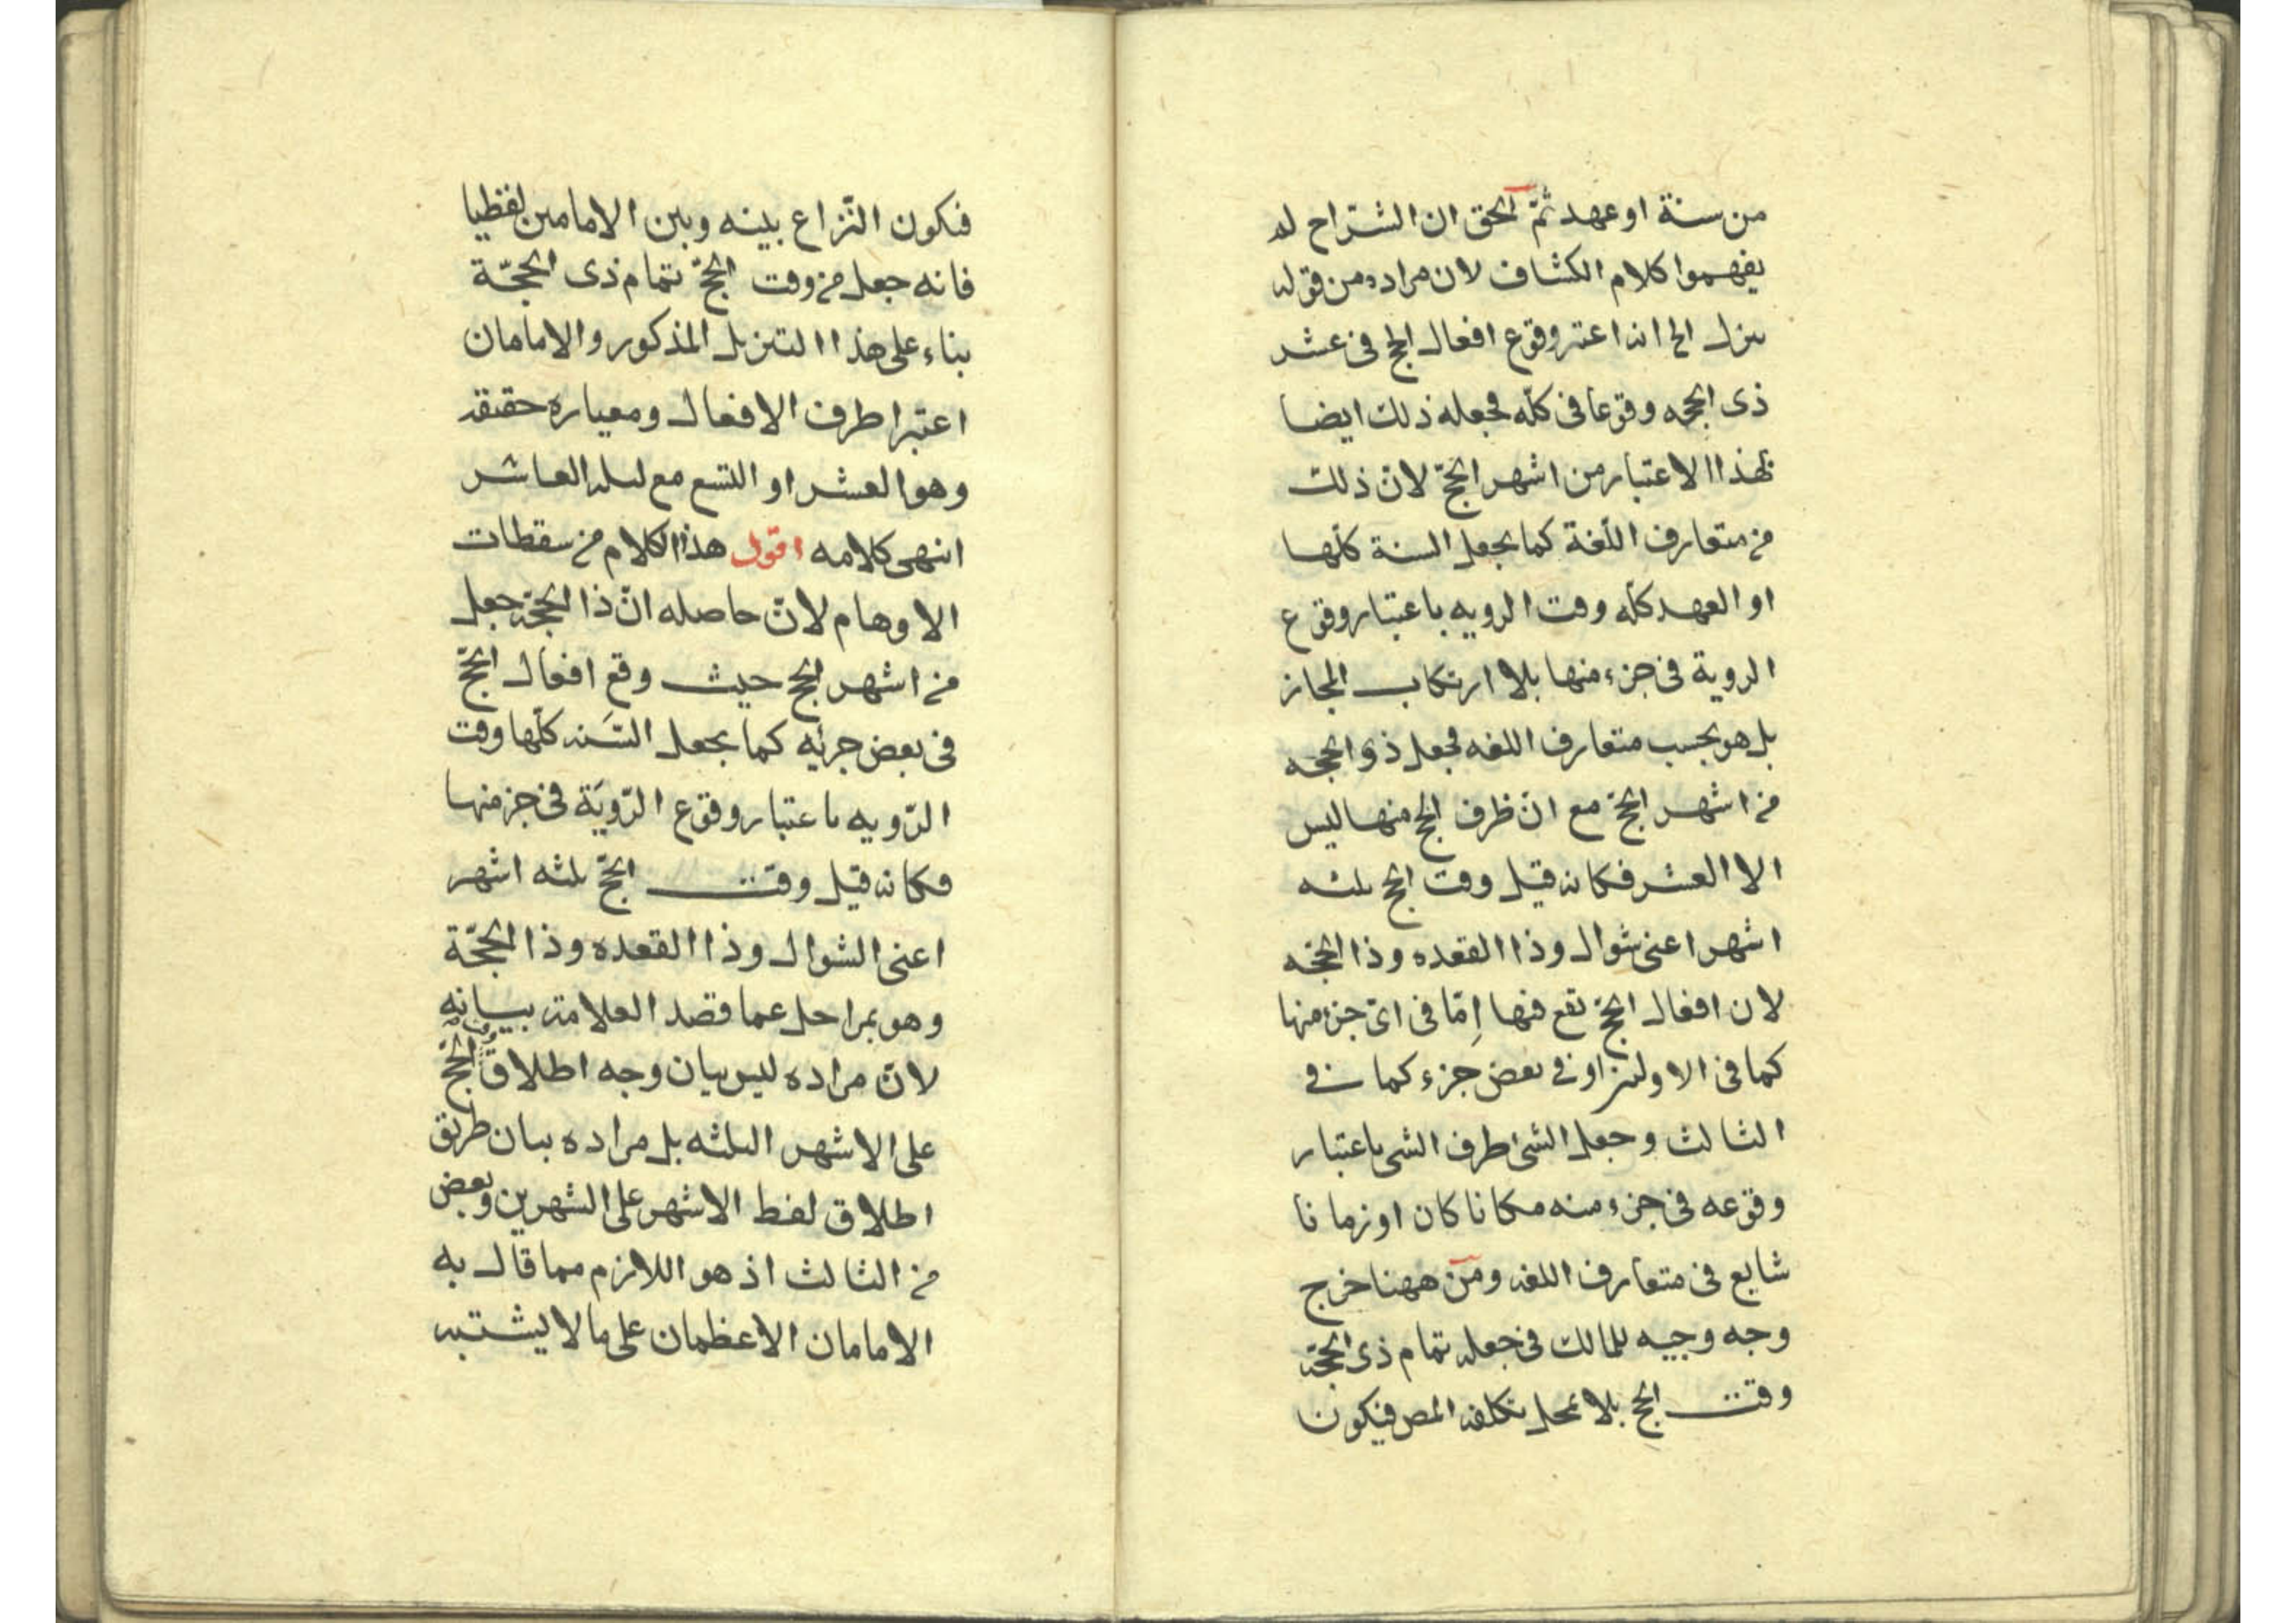 من سنة او عهد ثمّ الحق ان الشراح لم
يفهموا كلام الكشاف لان مراده من قوله
ينزل الخ انه اعتبر وقوع افعال الحج في عشر
ذى الحجه وقوعا فى كلّه فجعله ذلك ايضا
بهذا الاعتبار من اشهر الحجّ لانّ ذلك
من متعارف اللّغة كما يجعل السنة كلّها
او العهد كلّه وقت الرويه باعتبار وقوع
الروية فى جزء منها بلا ارتكاب المجاز
بل هو بحسب متعارف اللغه فجعل ذو الحجه
من اشهر الحجّ مع انّ ظرف الحج منها ليس
الا العشر فكانه قيل وقت الحج ثلثه
اشهر اعنى شوال وذا القعده وذا الحجّه
لان افعال الحجّ تقع فيها اِمّا فى اىّ جزء منها
كما فى الاولين او فى بعض جزء كما فى
الثالث وجعل الشئ ظرف الشى باعتبار
وقوعه فى جزء منه مكانا كان او زمانا
شايع فى متعارف اللغه ومن ههنا خرج
وجه وجيه للمالك فى جعله تمام ذى الحجّة
وقت الحج بلا تمحل تكلفه المص فيكون
فيكون النّزاع بينه وبين الامامين لفظيا
فانه جعل من وقت الحجّ تمام ذى الحجّة
بناء على هذا التنزيل المذكور والامامان
اعتبرا ظرف الافعال ومعياره حقيقة
وهو العشر او التسع مع ليله العاشر
انتهى كلامه اقول هذا الكلام من سقطات
الاوهام لانّ حاصله انّ ذا الحجّة جعل
من اشهر الحج حيث وقع افعال الحجّ
فى بعض جزئه كما يجعل السَّنه كلّها وقت
الرّويه باعتبار وقوع الرّويَة فى جز منها
فكانه قيل وقت الحجّ ثلثه اشهر
اعنى الشوال وذا القعده وذا الحجّة
وهو بمراحل عما قصد العلامة بيانه
لانّ مراده ليس بيان وجه اطلاق وقت الحجّ
على الاشهر الثلثه بل مراده بيان طريق
اطلاق لفظ الاشهر على الشهرين وبعض
من الثالث اذ هو اللازم مما قال به
الامامان الاعظمان على ما لا يشتبه